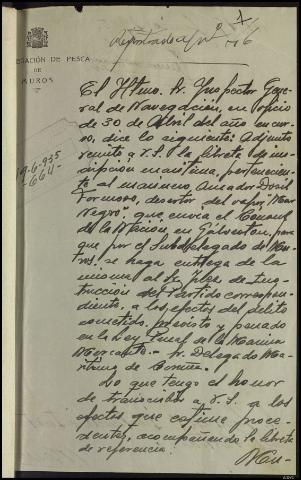 Registrado al nº 46
DELEGACIÓN DE PESCA
DE
MUROS
19-6-935
664
El Iltmo. Sr. Inspector Gene-
ral de Navegación, en oficio
de 30 de Abril del año en cur-
so, dice lo siguiente: Adjunto
remito a V.S. la libreta de ins-
cripción marítima, pertenecien-
te al marinero, Amador Dosil
Formoso, desertor del vapor "Mar
Negro", que envía el Cónsul
de la Nación, en Galveston, para
que por el Subdelegado de Mu-
ros, se haga entrega de la
misma al Sr. Juez de Ins-
trucción del Partido correspon-
diente, a los efectos del delito
cometido, previsto y penado
en la Ley Penal de la Marina
Mercante.- Sr. Delegado Ma-
rítimo de Coruña.
Lo que tengo el honor
de transcribir a V.S. a los
efectos que estime proce-
dentes, acompañando la libreta
de referencia.
Mu-